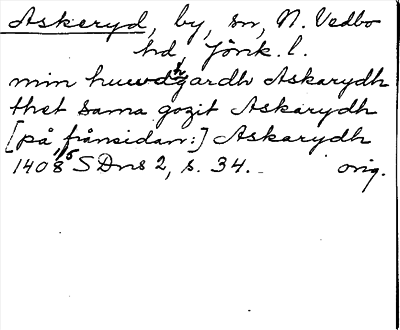 Askeryd, by, sn, N. Vedbo
hd, Jönk. l.
min huwdzgardh Askarydh
thet sama gozit Askarydh
[på frånsidan:] Askarydh
1408 1/5 SDns 2, s. 34. orig.